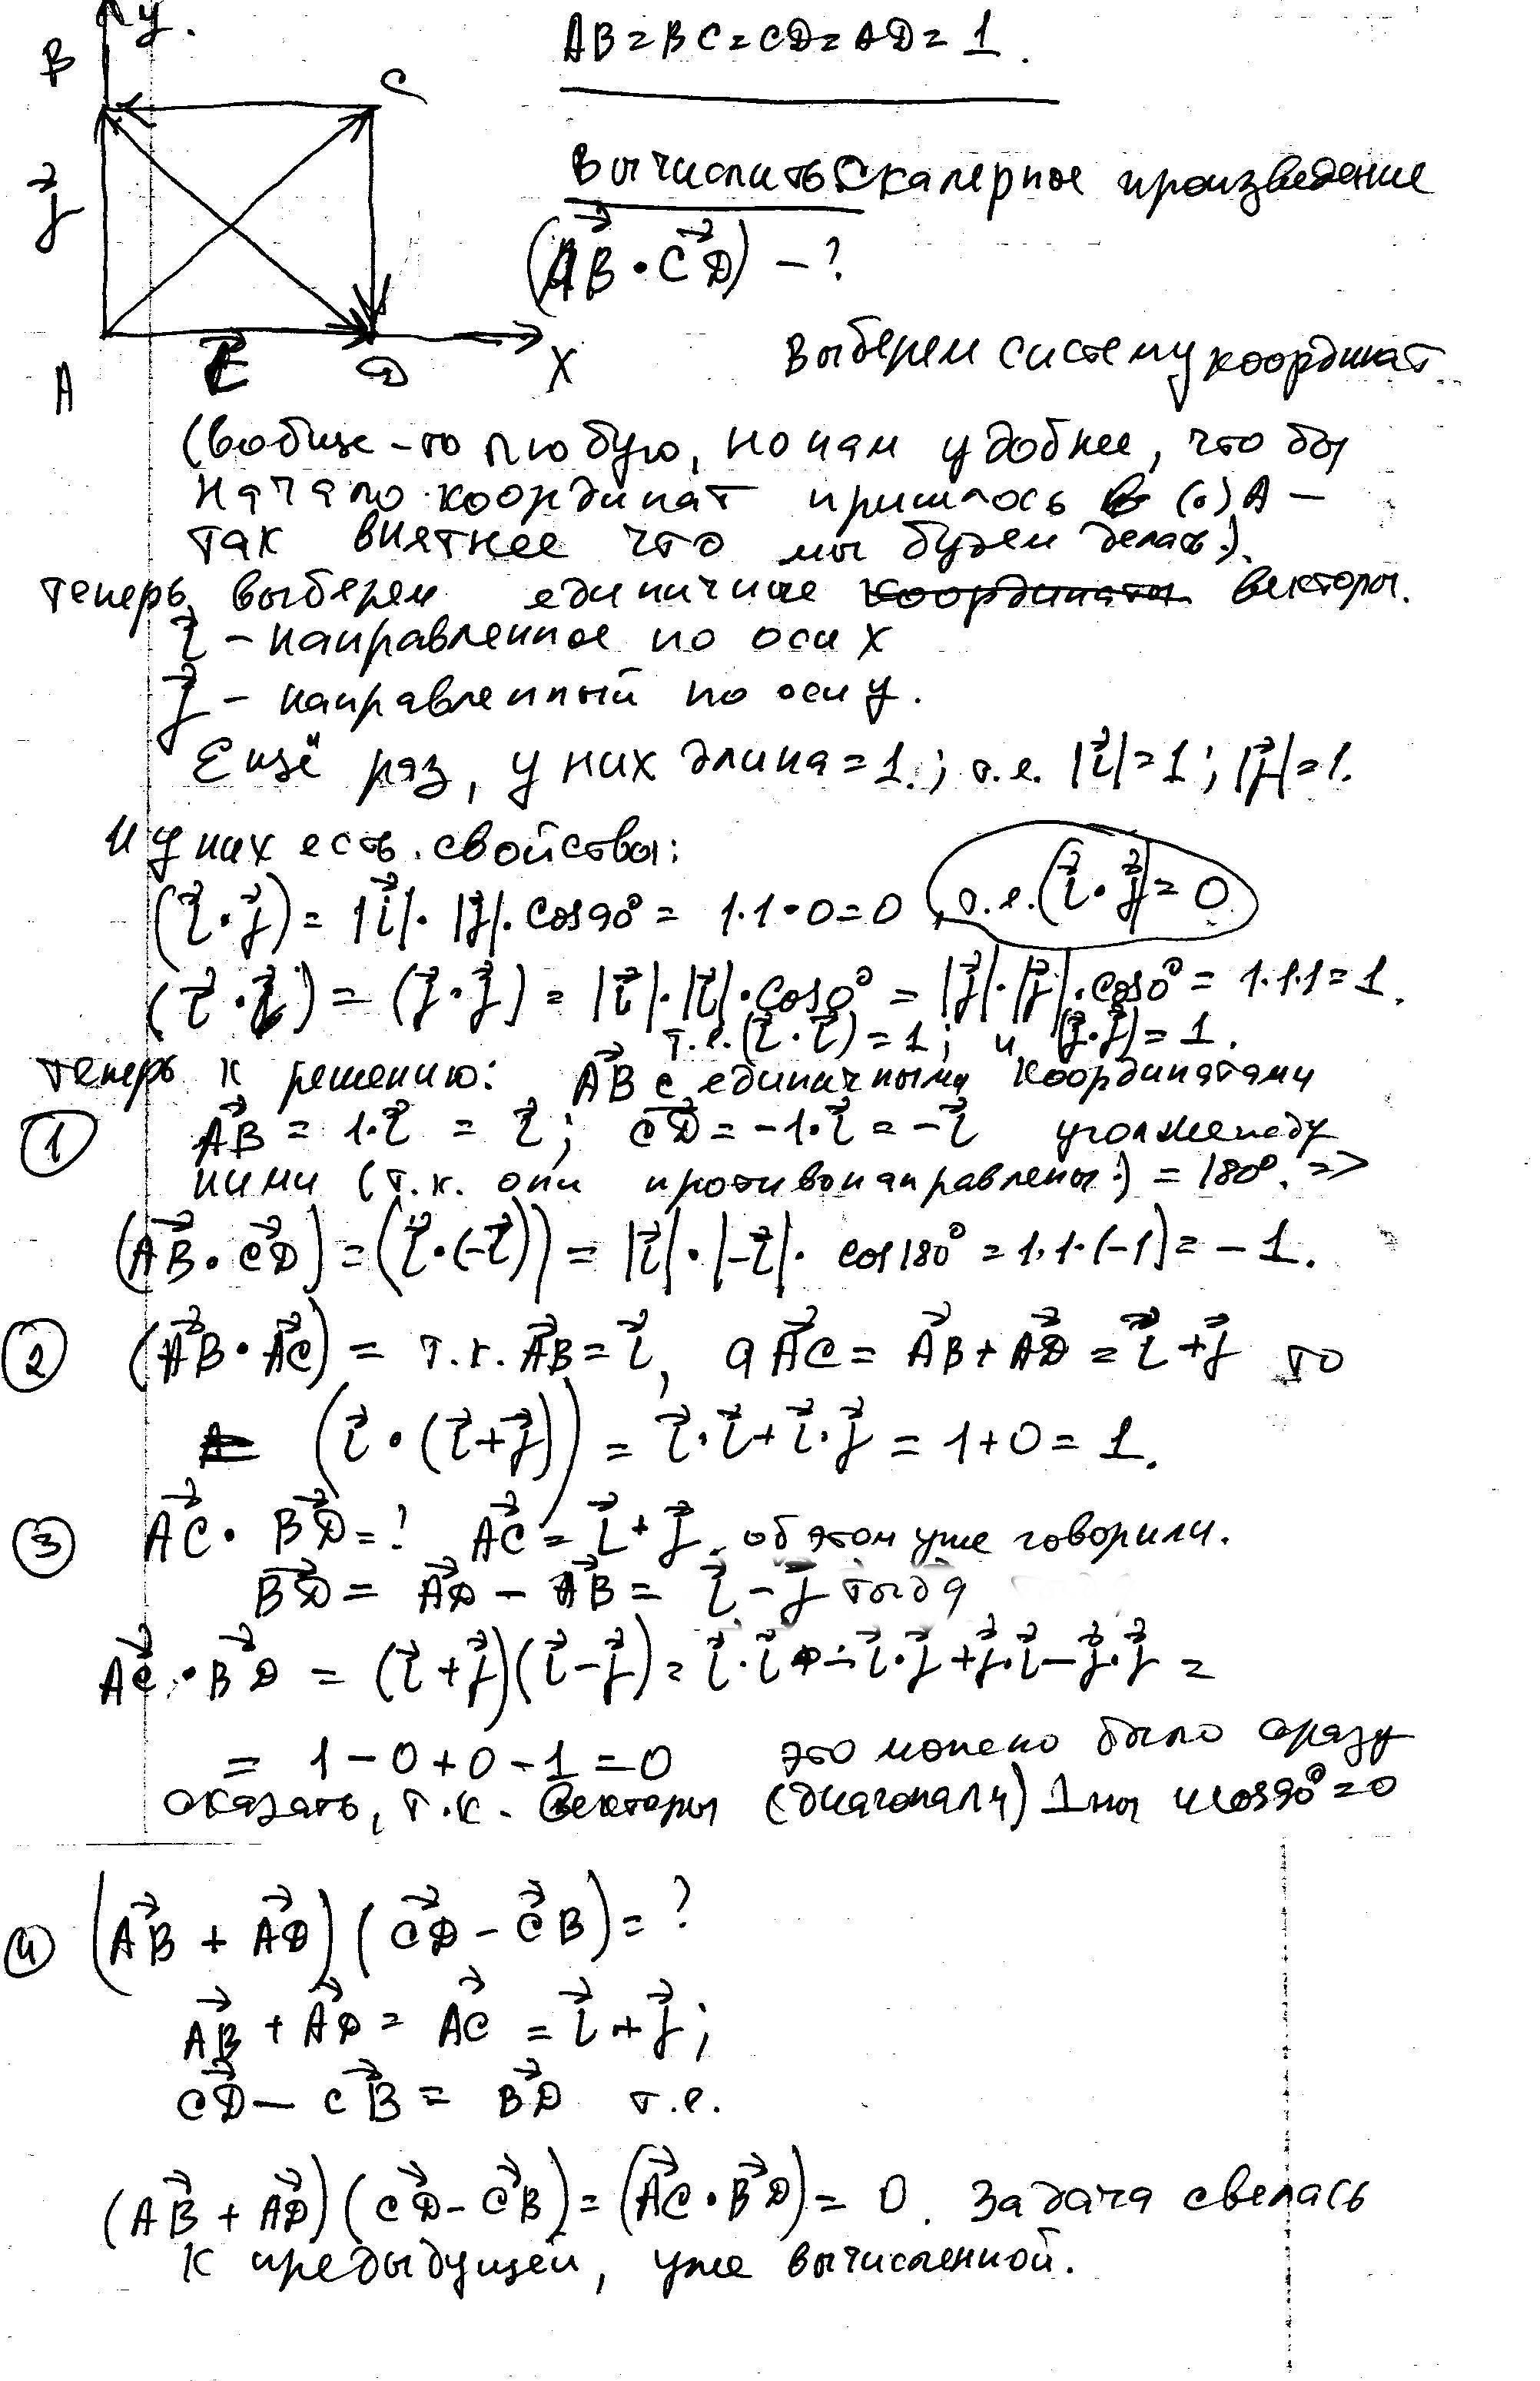 y.
B
C
AB=BC=CD=AD=1.
Вычислить Скалерное произведение
(AB⃗ · CD⃗) - ?
j⃗
A
i⃗
D
X
Выберем систему координат.
(вобще-то любую, но нам удобнее, что бы
начало координат пришлось в (·) A -
так внятнее что мы будем делать).
теперь выберем единичные координаты векторы.
i⃗ - направленное по оси x
j⃗ - направленный по оси y.
Ещё раз, у них длина=1.; т.е. |i⃗|=1; |j⃗|=1.
И у них есть свойства:
(i⃗·j⃗) = |i⃗|·|j⃗|·cos90° = 1·1·0=0, т.е. (i⃗·j⃗)=0
(i⃗·i⃗) = (j⃗·j⃗) = |i⃗|·|i⃗|·cos0° = |j⃗|·|j⃗|·cos0° = 1·1·1=1.
т.е. (i⃗·i⃗)=1; и (j⃗·j⃗)=1.
теперь к решению: AB⃗ с единичными координатами
① AB⃗ = 1·i⃗ = i⃗; CD⃗ = -1·i⃗ = -i⃗ угол между
ними (т.к. они противонаправлены) = 180°. =>
(AB⃗·CD⃗)=(i⃗·(-i⃗)) = |i⃗|·|-i⃗|·cos180°=1·1·(-1)=-1.
② (AB⃗·AC⃗) = т.к. AB⃗=i⃗, а AC⃗ = AB⃗+AD⃗ = i⃗+j⃗ то
(i⃗·(i⃗+j⃗)) = i⃗·i⃗+i⃗·j⃗ = 1+0=1.
③ AC⃗·BD⃗=? AC⃗=i⃗+j⃗, об этом уже говорили.
BD⃗ = AD⃗ - AB⃗ = i⃗-j⃗ тогда
AC⃗·BD⃗ = (i⃗+j⃗)(i⃗-j⃗)= i⃗·i⃗-i⃗·j⃗+j⃗·i⃗-j⃗·j⃗ =
= 1-0+0-1=0 это можно было сразу
сказать, т.к. векторы (диагонали) ⊥ны и cos90°=0
④ (AB⃗ + AD⃗)(CD⃗ - CB⃗)=?
AB⃗ + AD⃗ = AC⃗ = i⃗+j⃗;
CD⃗ - CB⃗ = BD⃗ т.е.
(AB⃗+AD⃗)(CD⃗-CB⃗)=(AC⃗·BD⃗)=0. Задача свелась
к предыдущей, уже вычисленной.